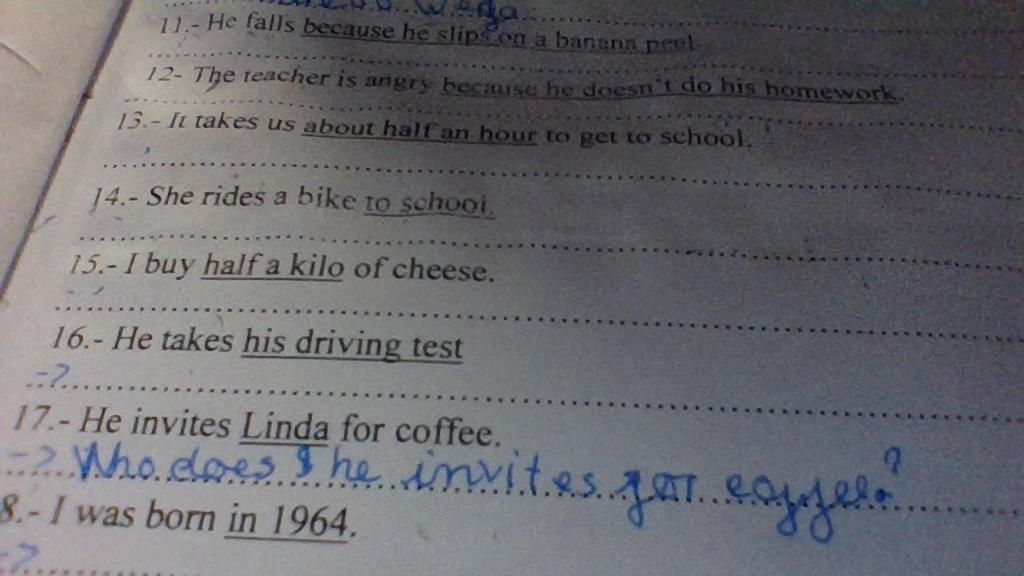 11.- He falls because he slips on a banana peel
12- The teacher is angry because he doesn't do his homework.
13.- It takes us about half an hour to get to school.
14.- She rides a bike to school.
15.- I buy half a kilo of cheese.
16.- He takes his driving test
17.- He invites Linda for coffee.
Who does he invites for coffee?
8.- I was born in 1964.